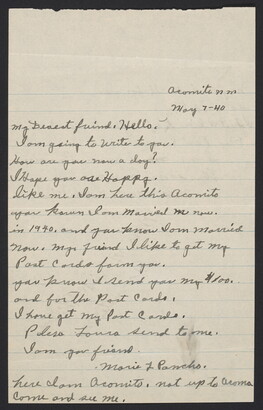 Acomito n.m.
May 7-40
My Dearest friend. Hello.
I am going to write to you.
How are you now a day?
I Hope you are Happy.
like me. I am here this Acomito
you know I am Married me now.
in 1940. and you know I am married
now. My friend I like to get my
Post Cards form you.
you know I send you my $1.00.
and for the Post Cards.
I hone get my Post Cards.
send to me.
I am you friend
Marie L Pancho.
here I am Acomito. not up to Acoma
Come and see me.